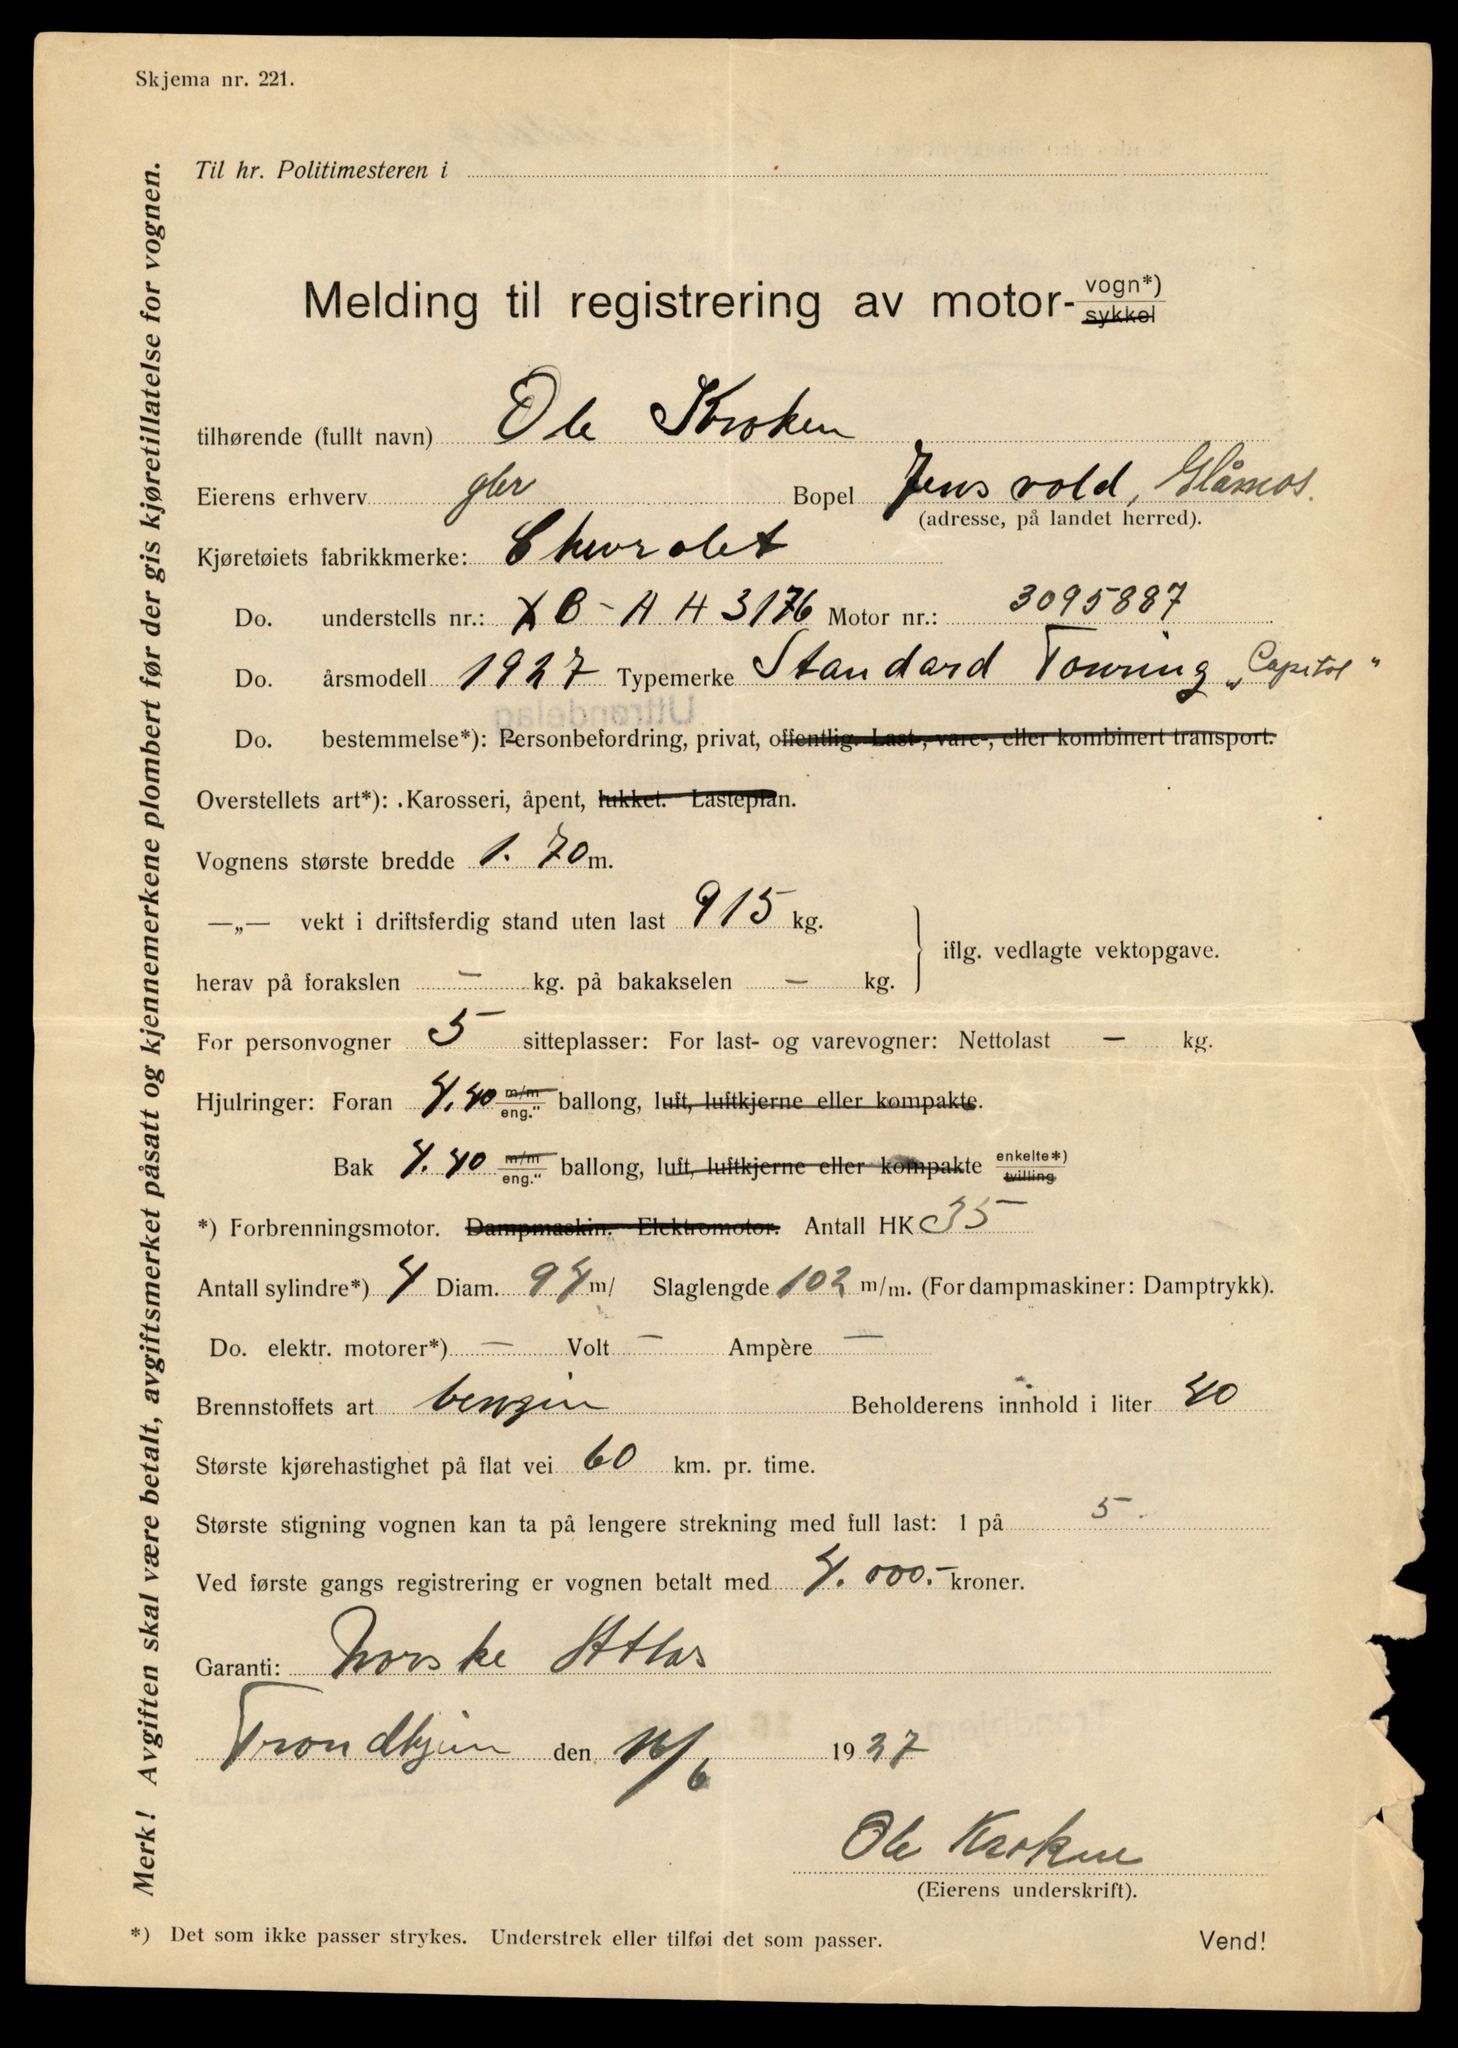 Skjema nr. 221.
Til hr. Politimesteren i
Melding til registrering av motor- vogn*) sykkel
tilhørende (fullt navn) Ole Kroken
Eierens erhverv gbr Bopel Jensvold, Glåmos.
(adresse, på landet herred).
Kjøretøiets fabrikkmerke: Chevrolet
Do. understells nr.: XB-AH3176 Motor nr.: 3095887
Do. årsmodell 1927 Typemerke Standard Touring „Capitol"
Uttrøndelag
Do. bestemmelse*): Personbefordring, privat, offentlig. Last-, vare-, eller kombinert transport.
Overstellets art*): Karosseri, åpent, lukket. Lasteplan.
Vognens største bredde 1.70 m.
—„— vekt i driftsferdig stand uten last 915 kg.
iflg. vedlagte vektopgave.
herav på forakslen — kg. på bakakselen — kg.
For personvogner 5 sitteplasser: For last- og varevogner: Nettolast — kg.
Hjulringer: Foran 4.40 m/m eng." ballong, luft, luftkjerne eller kompakte.
Bak 4.40 m/m eng." ballong, luft, luftkjerne eller kompakte enkelte*) tvilling
*) Forbrenningsmotor. Dampmaskin. Elektromotor. Antall HK 35
Antall sylindre*) 4 Diam. 94 m/ Slaglengde 102 m/m. (For dampmaskiner: Damptrykk).
Do. elektr. motorer*) — Volt — Ampère —
Brennstoffets art bensin Beholderens innhold i liter 40
Største kjørehastighet på flat vei 60 km. pr. time.
Største stigning vognen kan ta på lengere strekning med full last: 1 på 5.
Ved første gangs registrering er vognen betalt med 4.000.- kroner.
Garanti: Norske Atlas
Trondhjem den 16/6 1927
Ole Kroken
(Eierens underskrift).
*) Det som ikke passer strykes. Understrek eller tilføi det som passer.
Vend!
Merk! Avgiften skal være betalt, avgiftsmerket påsatt og kjennemerkene plombert før der gis kjøretillatelse for vognen.